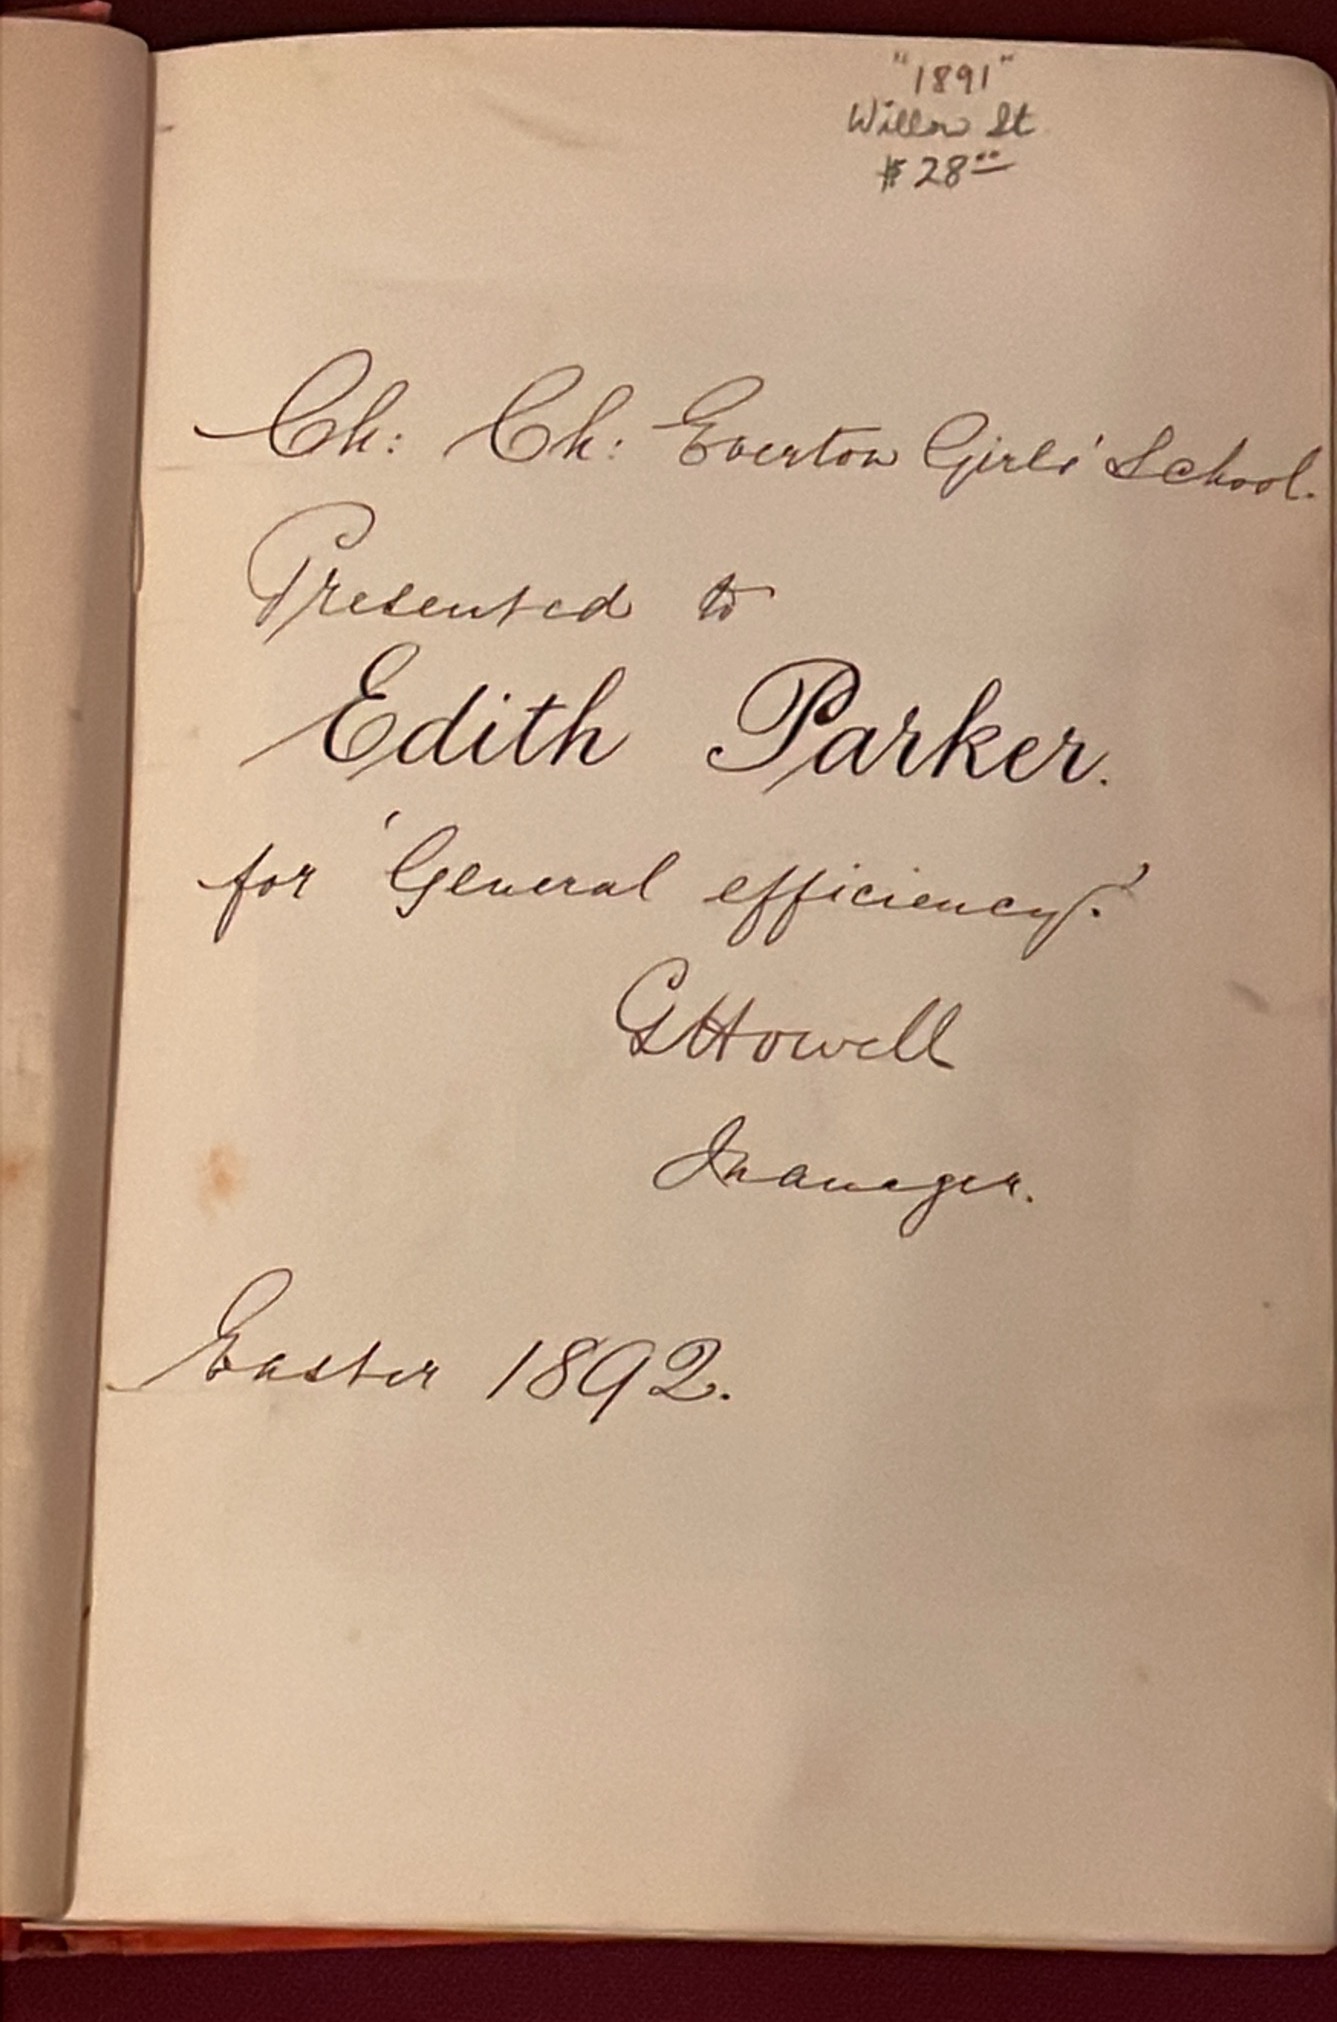 "1891"
Willow St
$28.00
Ch: Ch: Everton Girls' School.
Presented to
Edith Parker.
for 'General efficiency.'
G Howell
Manager.
Easter 1892.